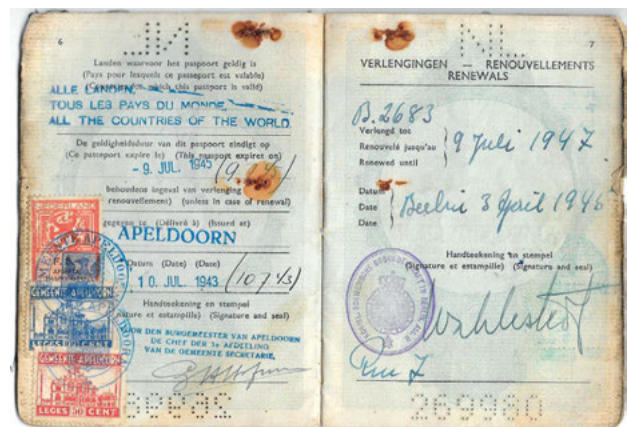 6
Landen waarvoor het paspoort geldig is
(Pays pour lesquels ce passeport est valable)
which this passport is valid)
ALLE LANDEN.
TOUS LES PAYS DU MONDE
ALL THE COUNTRIES OF THE WORLD.
De geldigheidsduur van dit paspoort eindigt op
(Ce passeport expire le) (This passport expires on)
- 9. JUL. 1945
behoudens ingeval van verlenging
renouvellement) (unless in case of renewal)
(Délivré à) (Issued at)
APELDOORN
Datum (Date) (Date)
10. JUL. 1943 (10 7 43)
Handteekening en stempel
et estampille) (Signature and seal)
VOOR DEN BURGEMEESTER VAN APELDOORN
DE CHEF DER 3e AFDEELING
VAN DE GEMEENTE SECRETARIE,
NEDERLAND
GEMEENTE APELDOORN
GEMEENTE APELDOORN
LEGES 50 CENT
NL
7
VERLENGINGEN — RENOUVELLEMENTS
RENEWALS
B. 2683
Verlengd tot
Renouvelé jusqu'au
Renewed until
9 Juli 1947
Datum
Date
Date
3 April 1945
Handteekening en stempel
(Signature et estampille) (Signature and seal)
269960